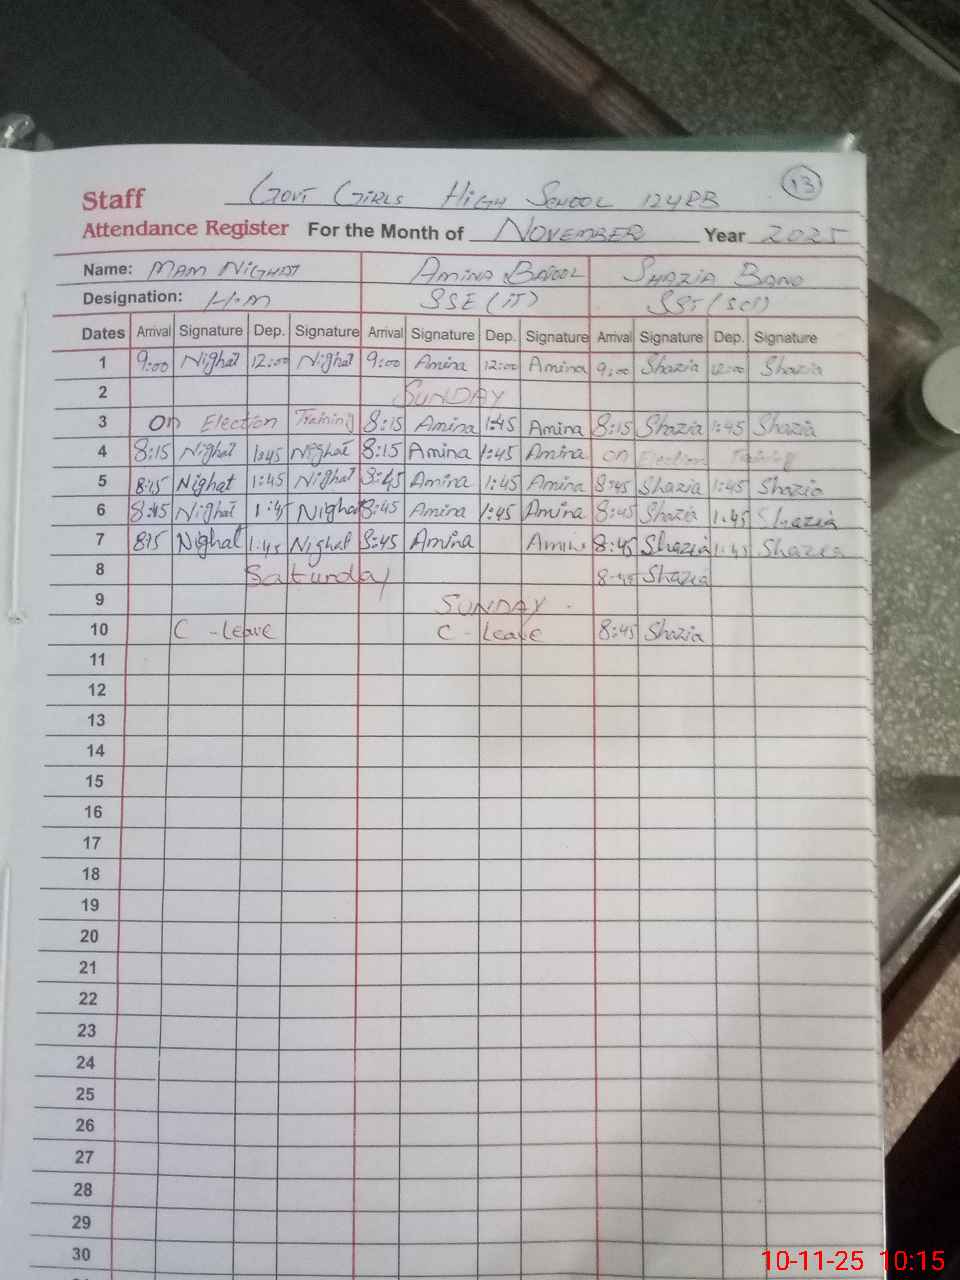 13
Staff GOVT GIRLS HIGH SCHOOL 124RB
Attendance Register For the Month of NOVEMBER Year 2025
Name: MAM NIGHAT AMINA BATOOL SHAZIA BANO
Designation: H.M SSE (IT) SST (SCI)
Dates Arrival Signature Dep. Signature Arrival Signature Dep. Signature Arrival Signature Dep. Signature
1 9:00 Nighat 12:00 Nighat 9:00 Amina 12:00 Amina 9:00 Shazia 12:00 Shazia
2 SUNDAY
3 On Election Training 8:15 Amina 1:45 Amina 8:15 Shazia 1:45 Shazia
4 8:15 Nighat 1:45 Nighat 8:15 Amina 1:45 Amina on Election Training
5 8:15 Nighat 1:45 Nighat 8:45 Amina 1:45 Amina 8:45 Shazia 1:45 Shazia
6 8:45 Nighat 1:45 Nighat 8:45 Amina 1:45 Amina 8:45 Shazia 1:45 Shazia
7 8:15 Nighat 1:45 Nighat 8:45 Amina Amina 8:45 Shazia 1:45 Shazia
8 Saturday 8:45 Shazia
9 SUNDAY
10 C-Leave C-Leave 8:45 Shazia
11
12
13
14
15
16
17
18
19
20
21
22
23
24
25
26
27
28
29
30
10-11-25 10:15